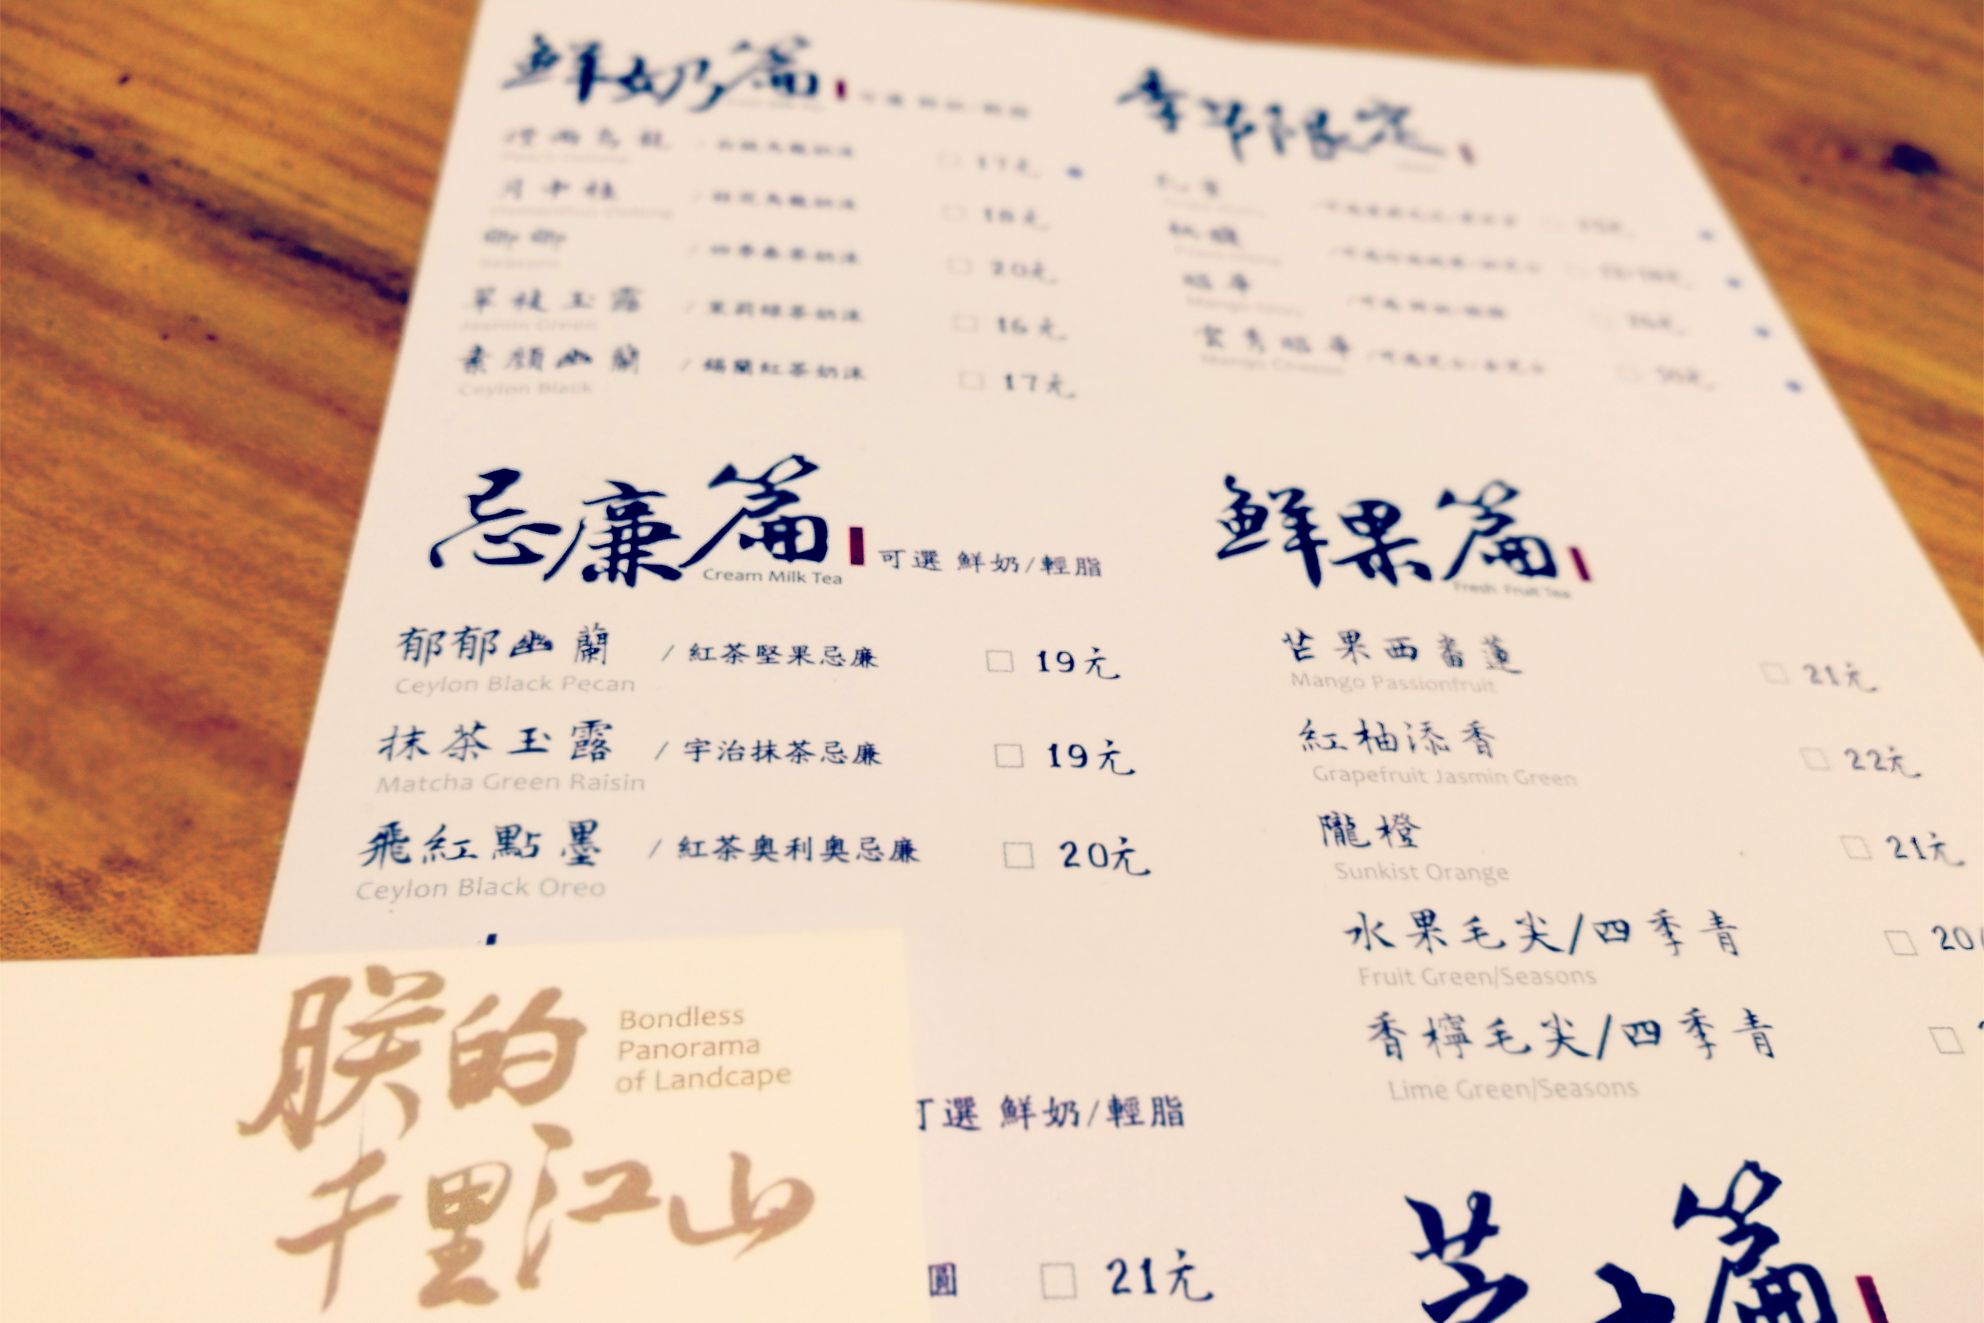 鮮奶篇
17元
月中桂
18元
20元
/ 茉莉綠茶奶沫 16元
素顏幽蘭 / 錫蘭紅茶奶沫 17元
Ceylon Black
季節限定
忌廉篇
Cream Milk Tea
可選 鮮奶/輕脂
郁郁幽蘭 / 紅茶堅果忌廉 19元
Ceylon Black Pecan
抹茶玉露 / 宇治抹茶忌廉 19元
Matcha Green Raisin
飛紅點墨 / 紅茶奧利奧忌廉 20元
Ceylon Black Oreo
鮮果篇
Fresh Fruit Tea
芒果西番蓮 21元
Mango Passionfruit
紅柚添香 22元
Grapefruit Jasmin Green
隴橙 21元
Sunkist Orange
水果毛尖/四季青 20
Fruit Green/Seasons
香檸毛尖/四季青
Lime Green/Seasons
朕的
千里江山
Bondless
Panorama
of Landcape
可選 鮮奶/輕脂
圓 21元
芝士篇